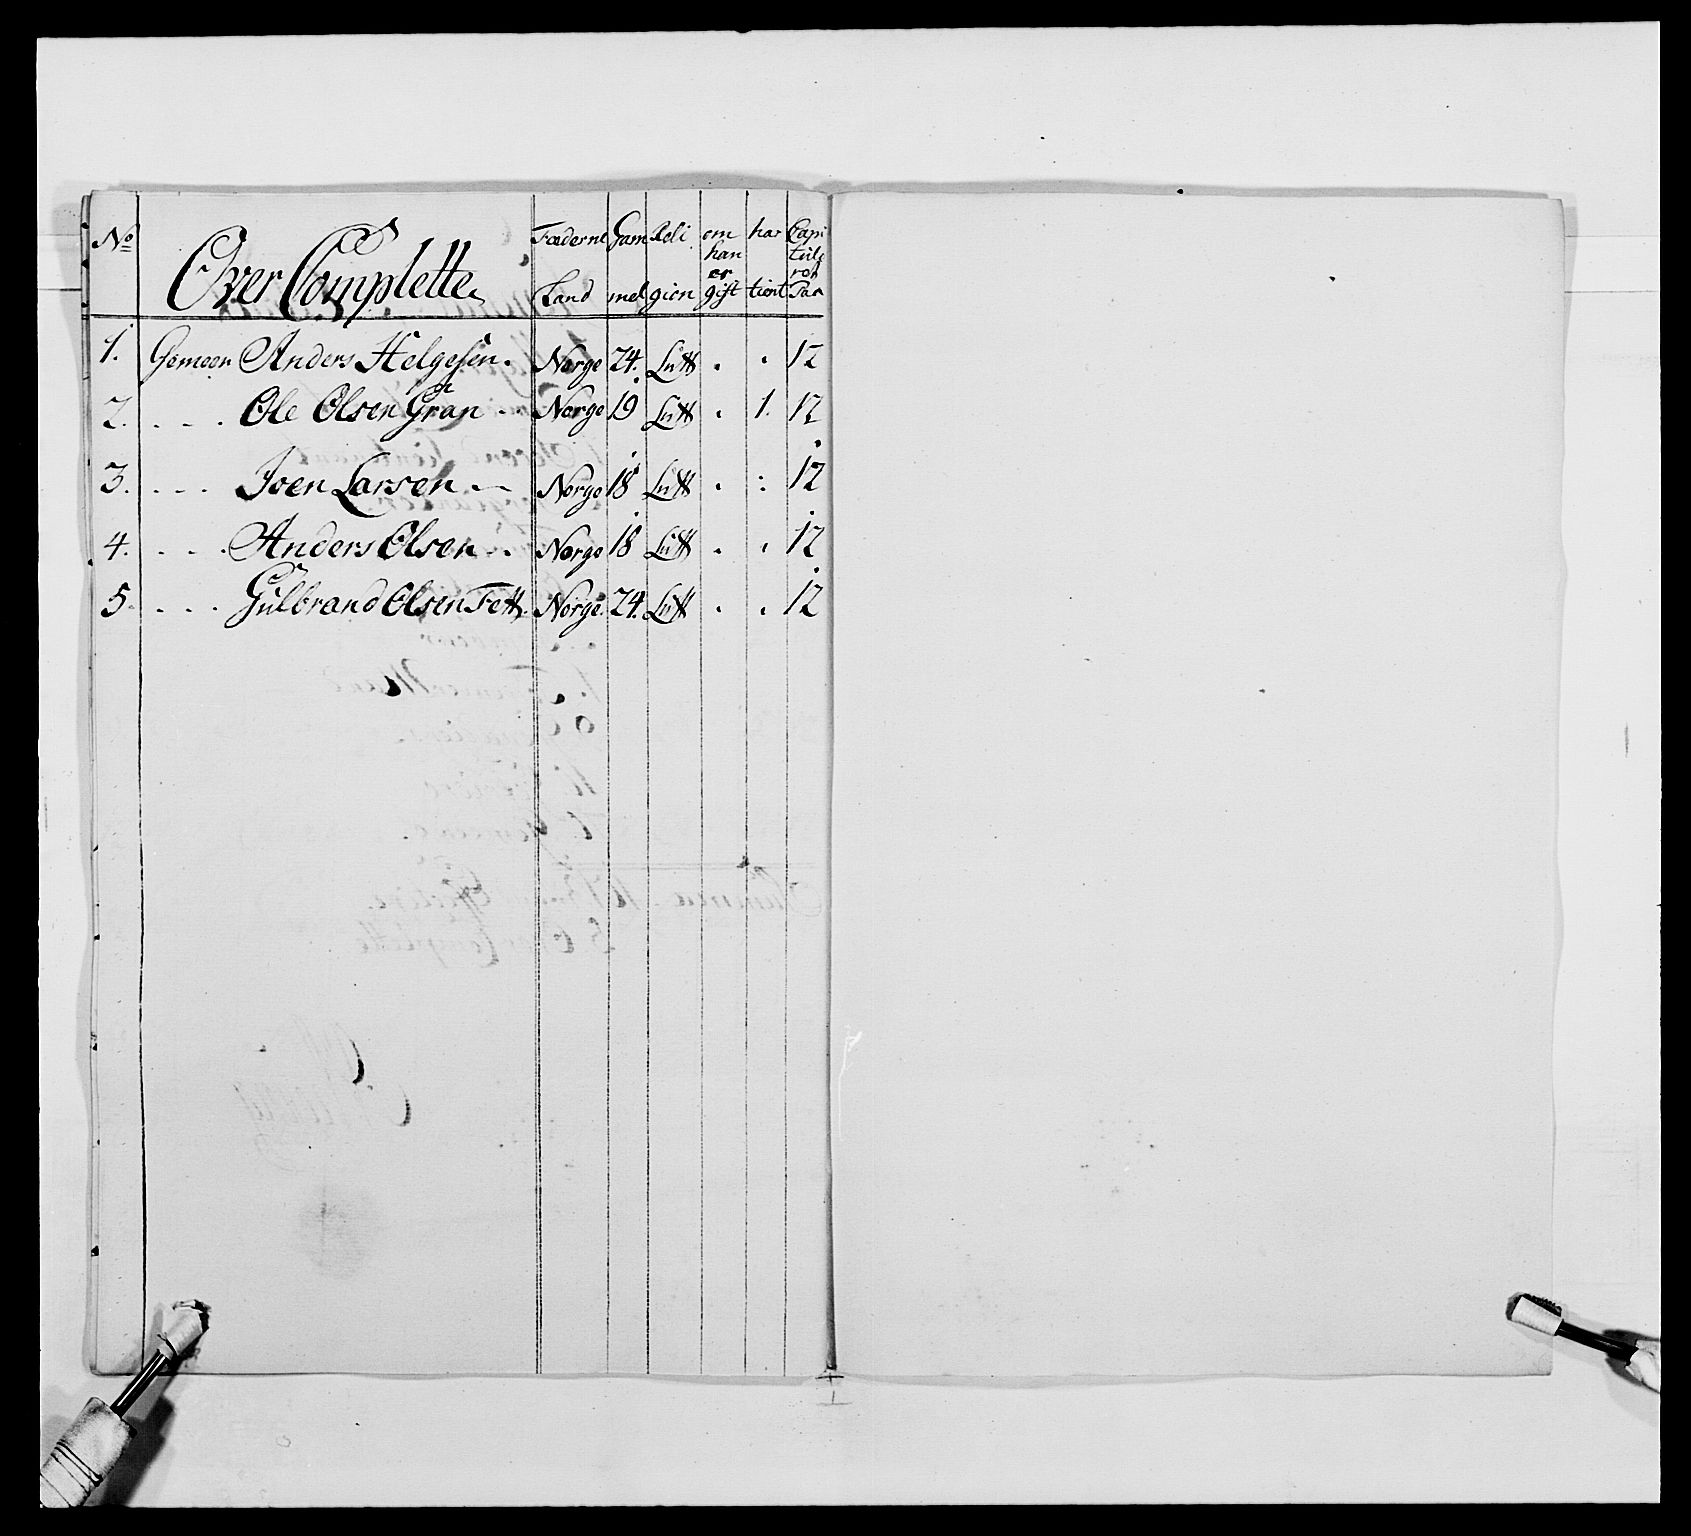 No Over Complette. Fæderne Land Gam mel Reli gion om han er gift har tient Capi tule ret Paa
1. Gemeen Anders Helgesen. Norge 24. Luth . . 12
2. . - - . Ole Olsen Gran - Norge 19 Luth . 1. 12
3. . - - . Joen Larsen - - Norge 18 Luth . : 12
4. . - - . Anders Olsen - . Norge 18 Luth . . 12
5. . - - . Gulbrand Olsen Fett. Norge. 24. Luth . . 12